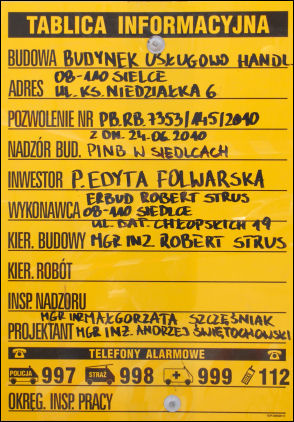 TABLICA INFORMACYJNA
BUDOWA BUDYNEK USŁUGOWO HANDL.
08-110 SIELCE
ADRES UL. KS. NIEDZIAŁKA 6
POZWOLENIE NR PB.RB.7353/145/2010
Z DN. 24.06.2010
NADZÓR BUD. PINB W SIEDLCACH
INWESTOR P. EDYTA FOLWARSKA
ERBUD ROBERT STRUS
WYKONAWCA 08-110 SIEDLCE
UL. BAT. CHŁOPSKICH 19
KIER. BUDOWY MGR INŻ ROBERT STRUS
KIER. ROBÓT
INSP. NADZORU
MGR INŻ MAŁGORZATA SZCZĘŚNIAK
PROJEKTANT MGR INŻ. ANDRZEJ ŚWIĘTOCHOWSKI
TELEFONY ALARMOWE
POLICJA 997 STRAŻ 998 999 112
OKRĘG. INSP. PRACY